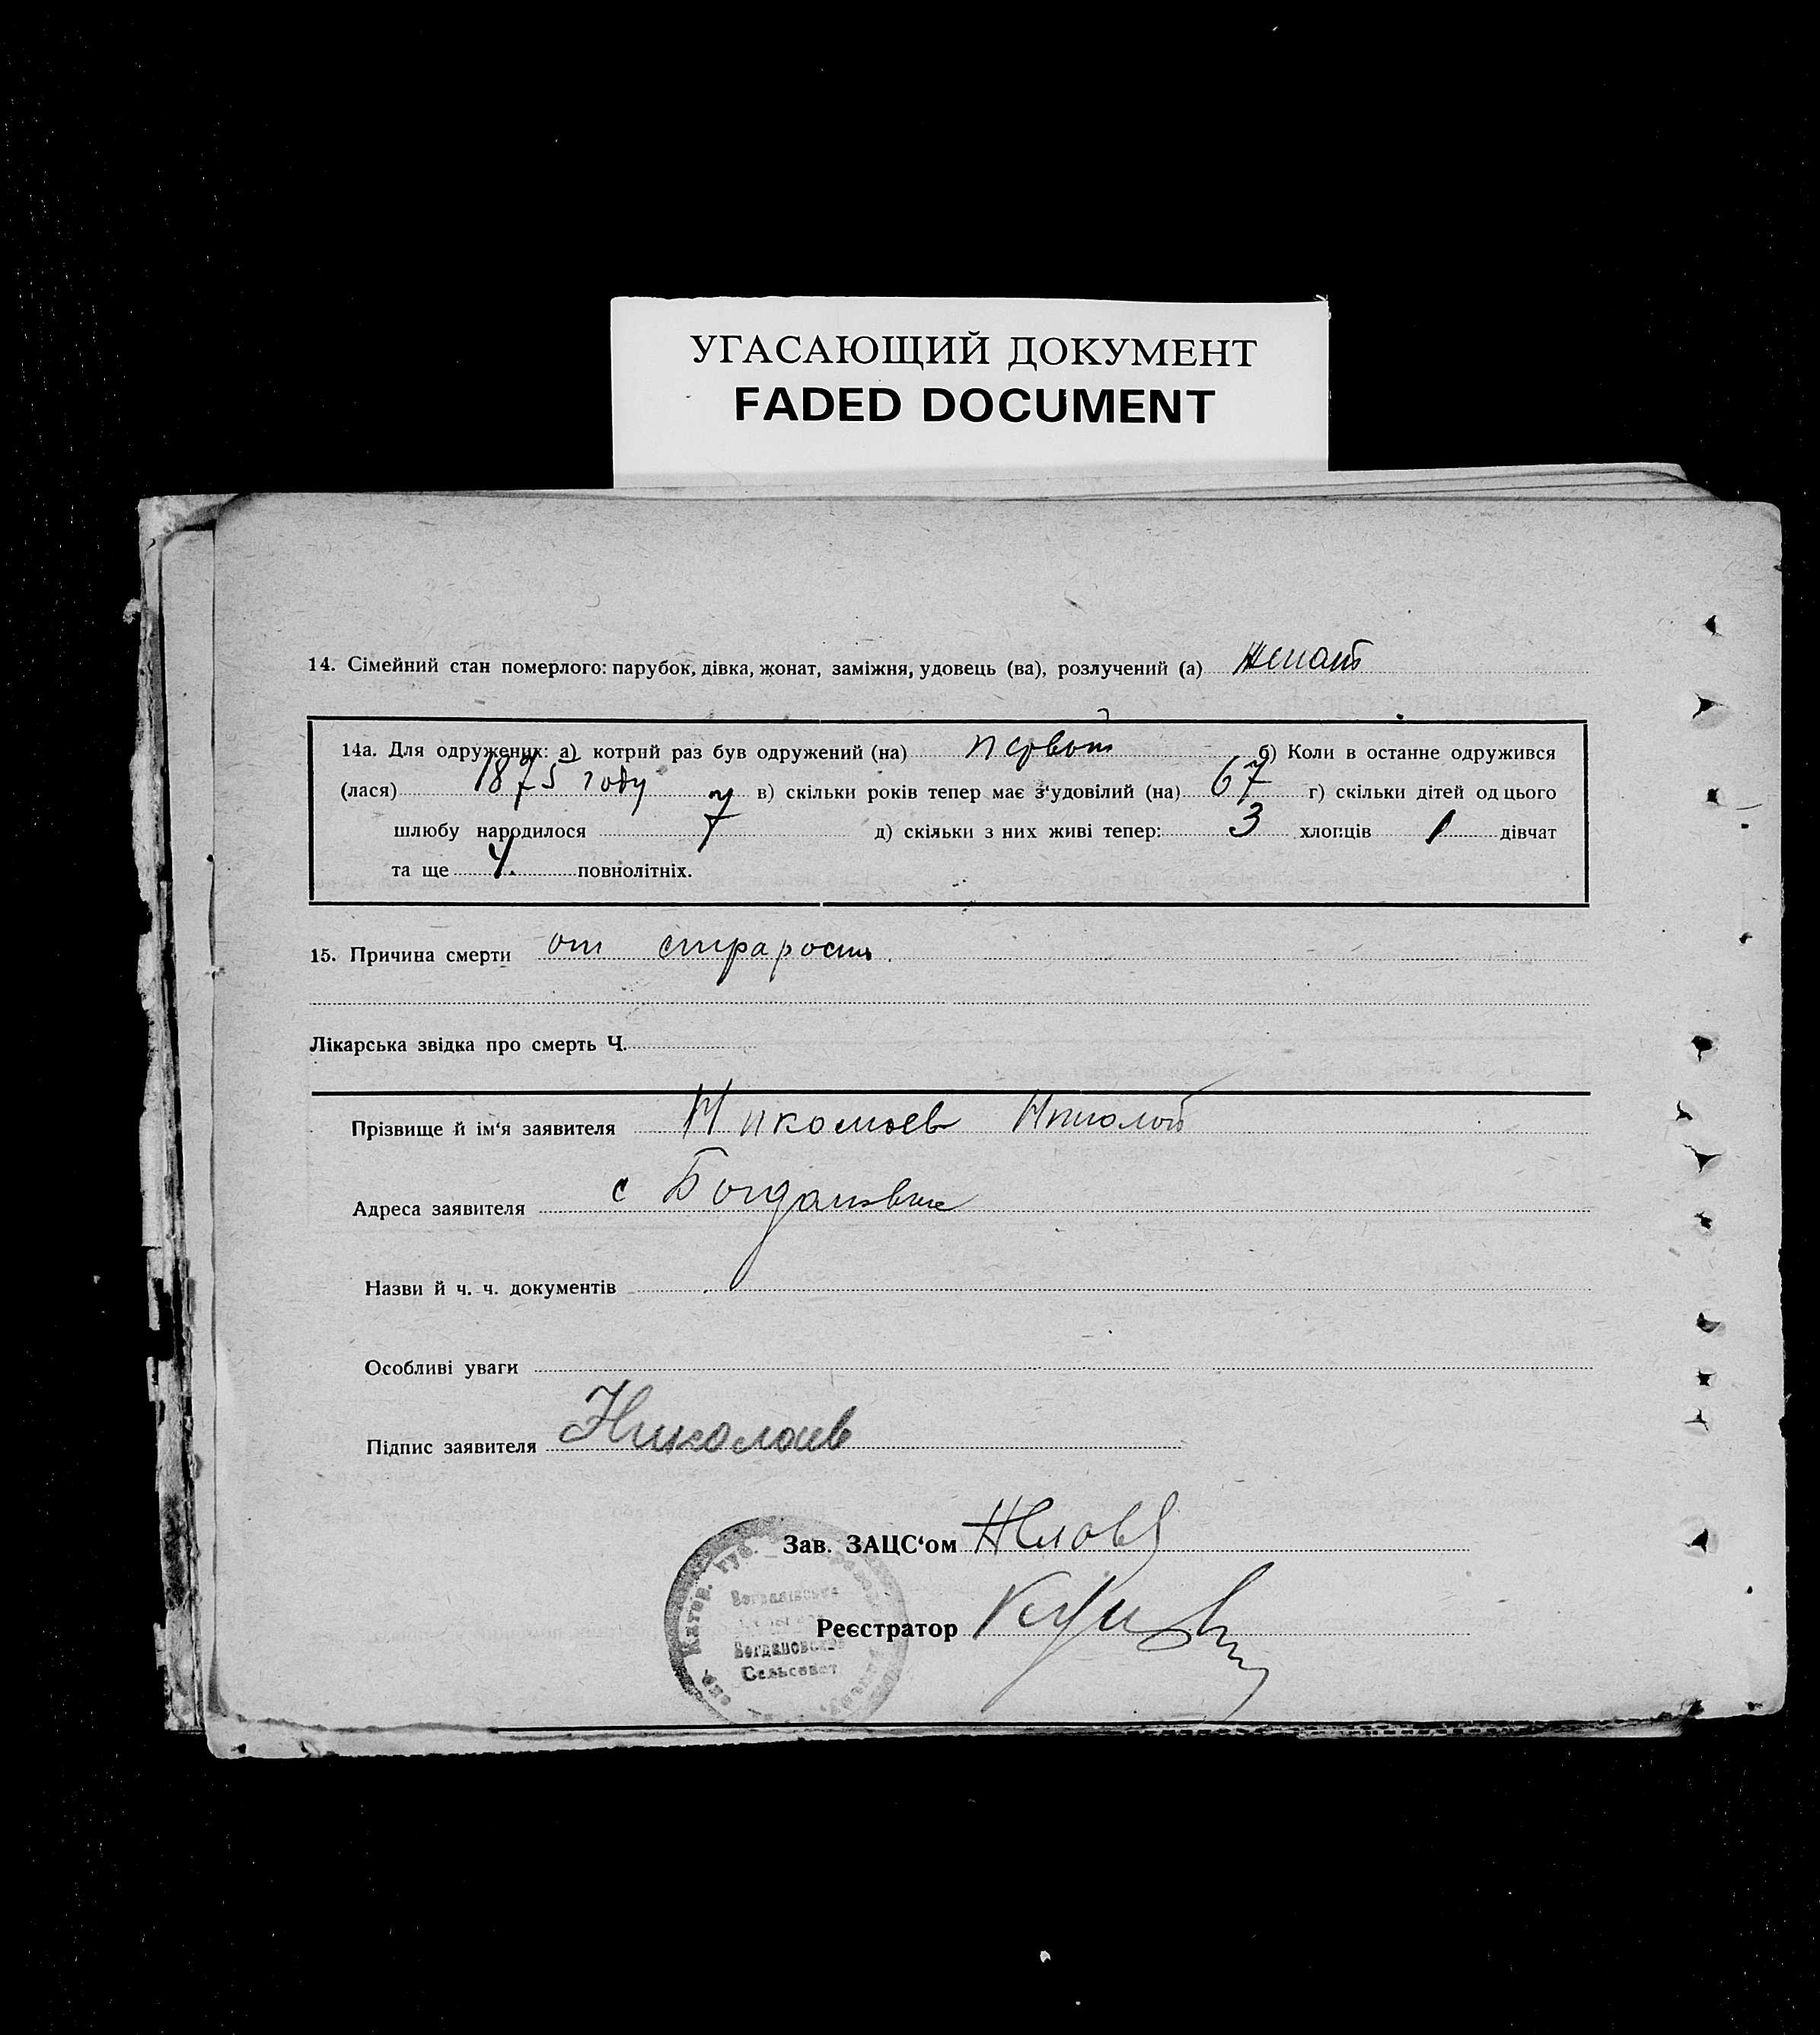 УГАСАЮЩИЙ ДОКУМЕНТ
FADED DOCUMENT
14. Сімейний стан померлого: парубок, дівка, жонат, заміжня, удовець (ва), розлучений (а) женат
14а. Для одружених: а) котрий раз був одружений (на) первый б) Коли в останне одружився
(лася) 1875 году в) скільки років тепер має з‘удовілий (на) 67 г) скільки дітей од цього
шлюбу народилося 7 д) скільки з них живі тепер: 3 хлопців 1 дівчат
та ще 4. повнолітніх.
15. Причина смерти от страрости.
Лікарська звідка про смерть Ч.
Прізвище й ім‘я заявителя Николаев Николай
Адреса заявителя с Богдановке
Назви й ч. ч. документів
Особливі уваги
Підпис заявителя Николаев
Зав. ЗАЦС‘ом
Реєстратор
Катер. Губ.
Богданівська
Богдановское
Сельсовет